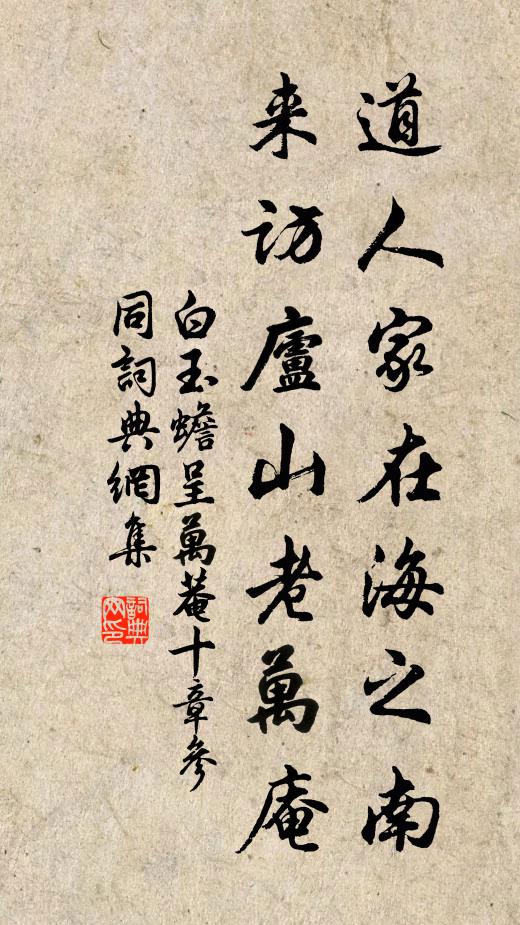 道人家在海之南
来访廬山老萬庵
白玉蟾呈萬菴十章參
同詞典網集
詞典
网印